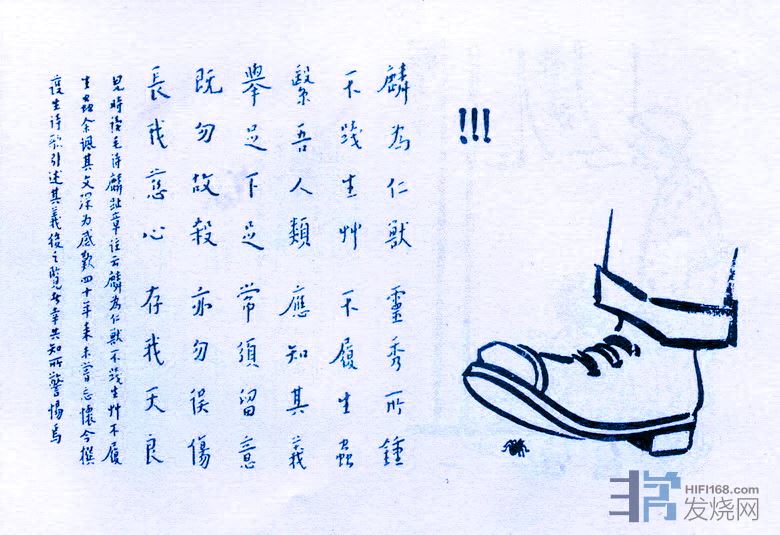 !!!
麟為仁獸 靈秀所鍾
不踐生艸 不履生蟲
繄吾人類 應知其義
舉足下足 常須留意
既勿故殺 亦勿誤傷
長我慈心 存我天良
兒時讀毛詩麟趾章注云麟為仁獸不踐生艸不履
生蟲余諷其文深為感歎四十年來未嘗忘懷今撰
護生詩歌引述其義後之覽者幸共知所警惕焉
HIFI168.com
发烧网